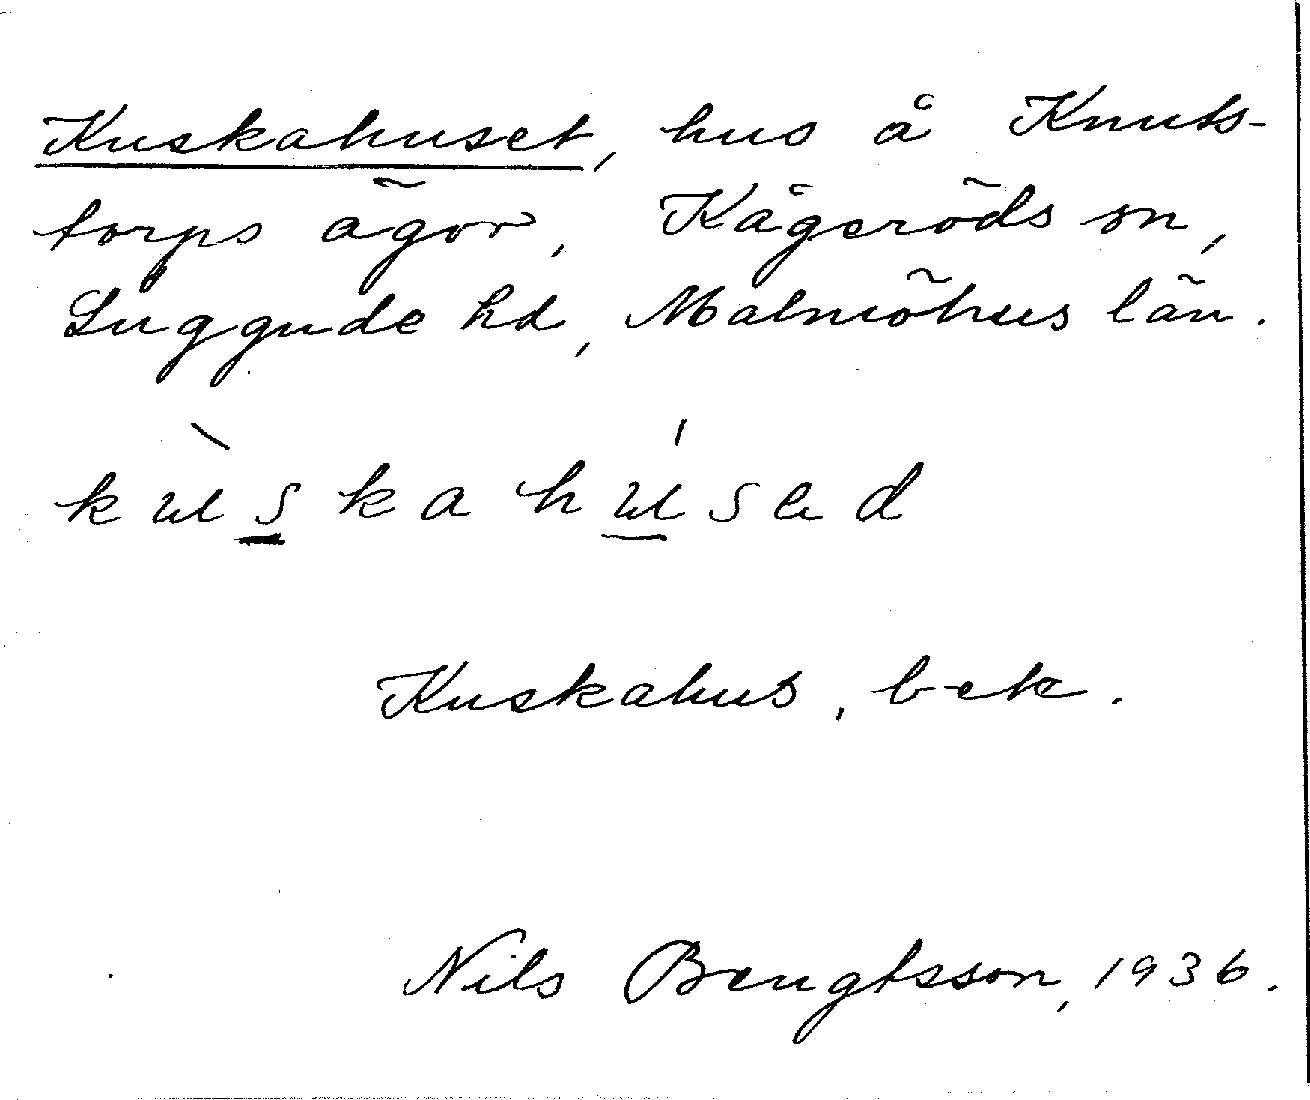 Kuskahuset, hus å Knuts-
torps ägor, Kågeröds sn,
Luggude hd, Malmöhus län.
kùskahúsad
Kuskahus, bek.
Nils Bengtsson, 1936.